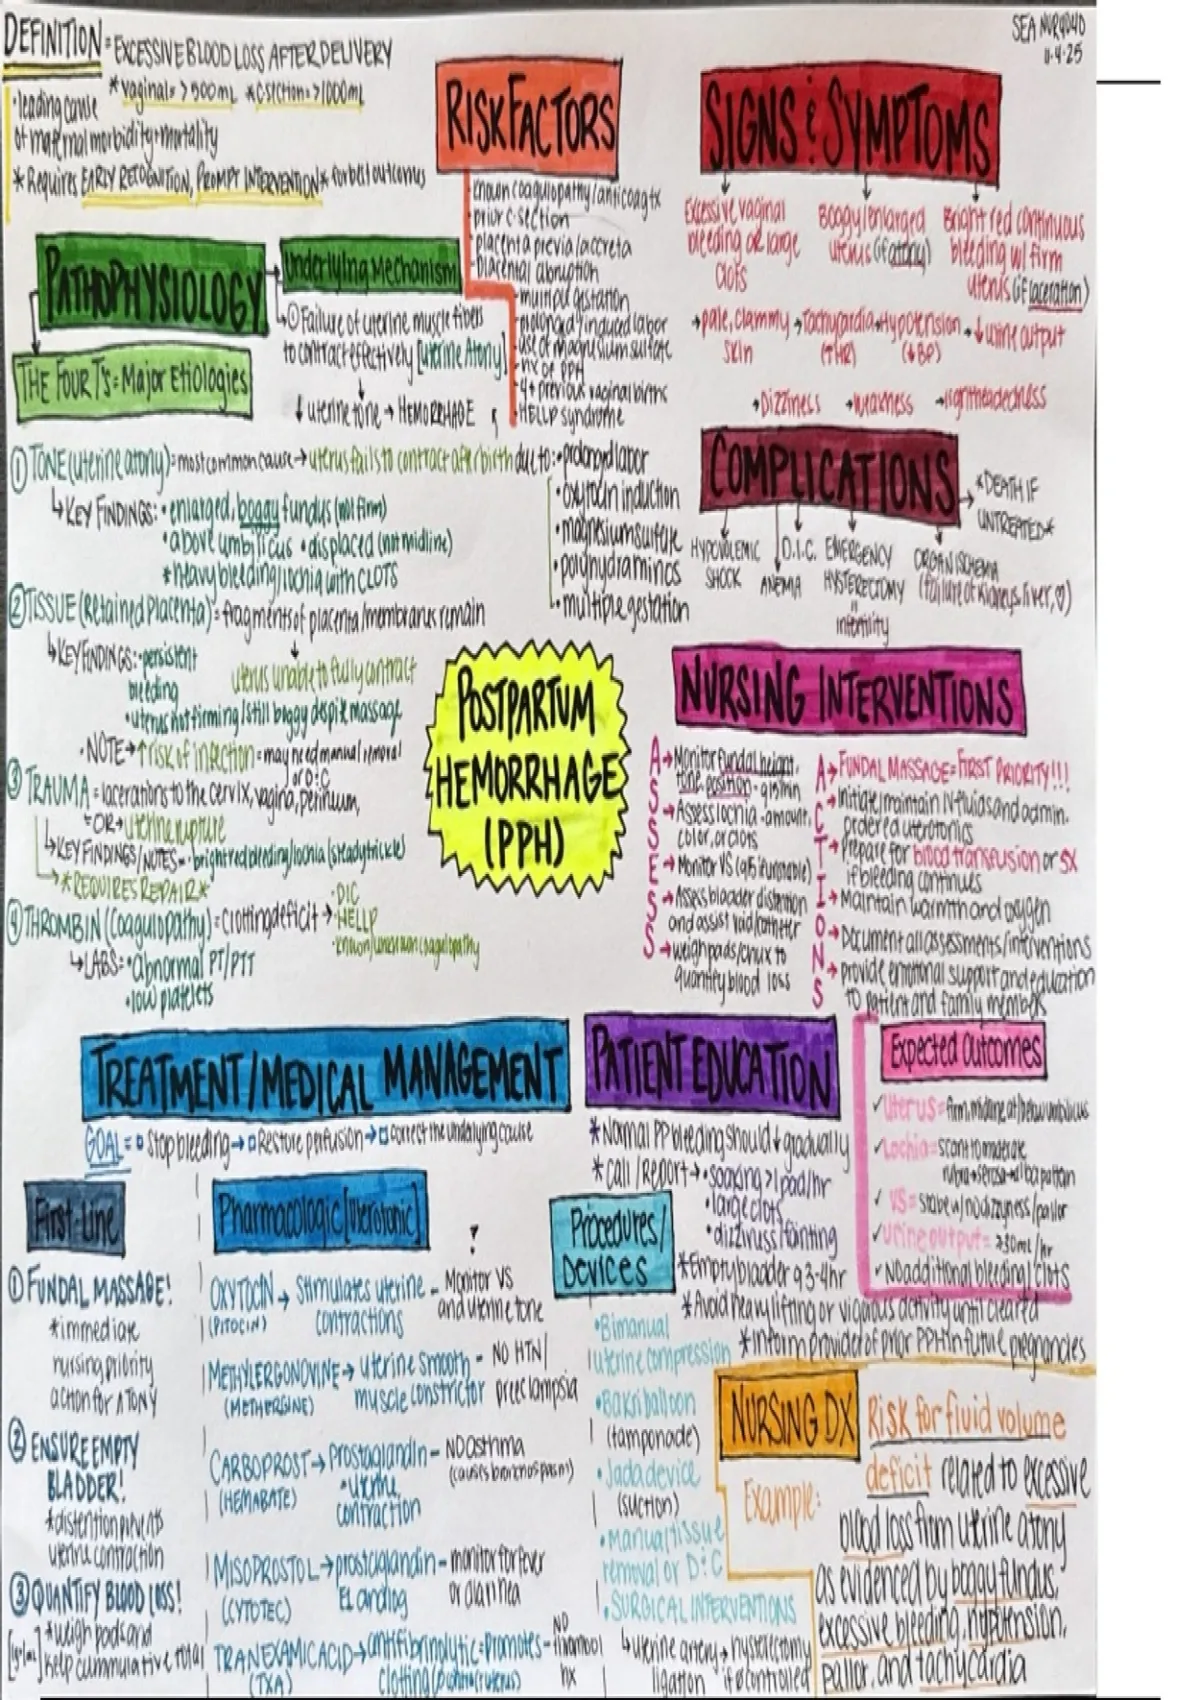 SEA NUR4040
11.4.25
DEFINITION = EXCESSIVE BLOOD LOSS AFTER DELIVERY
*Vaginal = >500mL *C-section = >1000mL
•leading cause
of maternal morbidity+mortality
*Requires EARLY RECOGNITION, PROMPT INTERVENTION* for best outcomes
RISK FACTORS
•known coagulopathy/anticoag tx
•prior c-section
•placenta previa/accreta
•placental abruption
•multiple gestation
•prolonged/induced labor
•use of magnesium sulfate
•hx of PPH
•4+ previous vaginal births
•HELLP syndrome
SIGNS & SYMPTOMS
Excessive vaginal
bleeding or large
clots
Boggy/enlarged
uterus (if atony)
Bright red continuous
bleeding w/ firm
uterus (if laceration)
→pale, clammy
skin
→Tachycardia
(↑HR)
→Hypotension
(↓BP)
→↓urine output
→Dizziness →weakness →lightheadedness
PATHOPHYSIOLOGY
Underlying Mechanism
↳①Failure of uterine muscle fibers
to contract effectively [uterine Atony]
↓
↓uterine tone → HEMORRHAGE
THE FOUR T's = Major Etiologies
①TONE (uterine atony) = most common cause → uterus fails to contract after birth due to:
•prolonged labor
•oxytocin induction
•magnesium sulfate
•polyhydraminos
•multiple gestation
↳KEY FINDINGS: •enlarged, boggy fundus (not firm)
•above umbilicus •displaced (not midline)
*heavy bleeding/lochia with CLOTS
②TISSUE (Retained Placenta) = fragments of placenta/membranes remain
↓
uterus unable to fully contract
↳KEY FINDINGS: •persistent
bleeding
•uterus not firming/still boggy despite massage
•NOTE→↑risk of infection = may need manual removal
or D&C
③TRAUMA = lacerations to the cervix, vagina, perineum,
OR→uterine rupture
↳KEY FINDINGS/NOTES = •bright red bleeding/lochia (steady trickle)
→*REQUIRES REPAIR*
④THROMBIN (Coagulopathy) = clotting deficit →
•DIC
•HELLP
•known/unknown coagulopathy
↳LABS: •abnormal PT/PTT
•low platelets
COMPLICATIONS
→*DEATH IF
UNTREATED*
HYPOVOLEMIC
SHOCK
ANEMIA
D.I.C.
EMERGENCY
HYSTERECTOMY
=
infertility
ORGAN ISCHEMIA
(failure of kidneys, liver, ♡)
POSTPARTUM
HEMORRHAGE
(PPH)
NURSING INTERVENTIONS
ASSESS
→Monitor fundal height,
tone, position - q15min
→Assess lochia - amount,
color, or clots
→Monitor VS (q5 if unstable)
→Assess bladder distention
and assist void/catheter
→weigh pads/chux to
quantify blood loss
ACTIONS
→FUNDAL MASSAGE = FIRST PRIORITY!!!
→Initiate/maintain IV fluids and admin.
ordered uterotonics
→Prepare for blood transfusion or SX
if bleeding continues
→Maintain warmth and oxygen
→Document all assessments/interventions
→provide emotional support and education
to patient and family members
TREATMENT/MEDICAL MANAGEMENT
GOAL = □ Stop bleeding → □ Restore perfusion → □ correct the underlying cause
First-Line
①FUNDAL MASSAGE!
*immediate
nursing priority
action for ATONY
②ENSURE EMPTY
BLADDER!
*distention prevents
uterine contraction
③QUANTIFY BLOOD LOSS!
*weigh pads and
keep cummulative total
Pharmacologic [Uterotonic]
OXYTOCIN → Stimulates uterine - Monitor VS
(PITOCIN) contractions and uterine tone
METHYLERGONOVINE → uterine smooth - NO HTN/
(METHERGINE) muscle constrictor preeclampsia
CARBOPROST → Prostaglandin - NO asthma
(HEMABATE) •uterine (causes bronchospasm)
contraction
MISOPROSTOL → prostaglandin - monitor for fever
(CYTOTEC) E1 analog or diarrhea
TRANEXAMIC ACID → antifibrinolytic = Promotes - NO
(TXA) clotting hx
Procedures/
Devices
•Bimanual
uterine compression
•Bakri balloon
(tamponade)
•Jada device
(suction)
•Manual tissue
removal or D&C
•SURGICAL INTERVENTIONS
↳uterine artery → hysterectomy
ligation if controlled
PATIENT EDUCATION
*Normal PP bleeding should ↓ gradually
*call/Report → •soaking >1 pad/hr
•large clots
•dizziness/fainting
*Empty bladder q 3-4hr
*Avoid heavy lifting or vigorous activity until cleared
*Inform provider of prior PPH in future pregnancies
Expected Outcomes
✓Uterus = firm, midline at/below umbilicus
✓Lochia = scant to moderate
rubra→serosa→alba pattern
✓VS = stable w/ no dizzyness/pallor
✓Urine output = ≥30mL/hr
✓No additional bleeding/clots
NURSING DX
Example:
Risk for fluid volume
deficit related to excessive
blood loss from uterine atony
as evidenced by boggy fundus,
excessive bleeding, hypotension,
pallor, and tachycardia